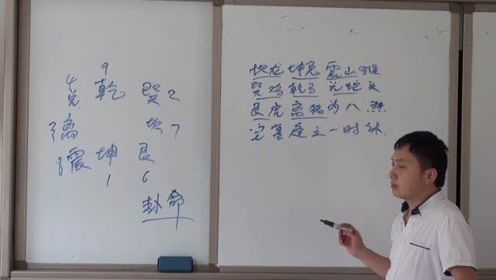 9
4
兑 乾 巽 2
离 坎 7
震 坤 艮
1 6
卦命
坎龙坤兔震山猴
巽鸡乾马兑蛇头
艮虎离猪为八煞
宅墓逢之一时休